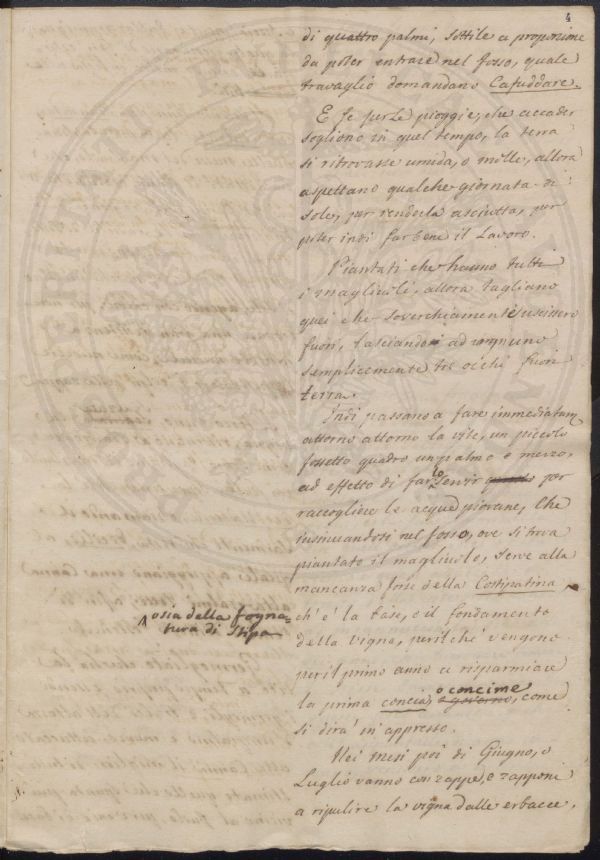 4
di quattro palmi, sottile a proporzione
da poter entrare nel fosso, quale
travaglio domandano Cafuddare.
E se per le pioggie, che accader
sogliono in quel tempo, la terra
si ritrovasse umida, o molle, allora
aspettano qualche giornata di
sole, per renderla asciutta, per
poter indi far bene il Lavoro.
Piantati che hanno tutti
i magliuoli, allora tagliano
quei che soverchiamente uscissero
fuori, lasciandovi ad ognuno
semplicemente tre occhi fuori
terra.
Indi passano a fare immediatam
attorno attorno la vite, un piccolo
fossetto quadro un palmo e mezzo,
ad effetto di farlo servir per
raccogliere le acque piovane, che
insinuandosi nel fosso, ove si trova
piantato il magliuolo, serve alla
mancanza forse della Costipatina
osia della fogna-
tura di Stipa
ch' è la base, e il fondamento
della vigna, per il chè vengono
per il primo anno a risparmiare
la prima concia, o concime, come
si dirà in appresso.
Nei mesi poi di Giugno, o
Luglio vanno con zappe, e zapponi
a ripulire la vigna dalle erbacce,